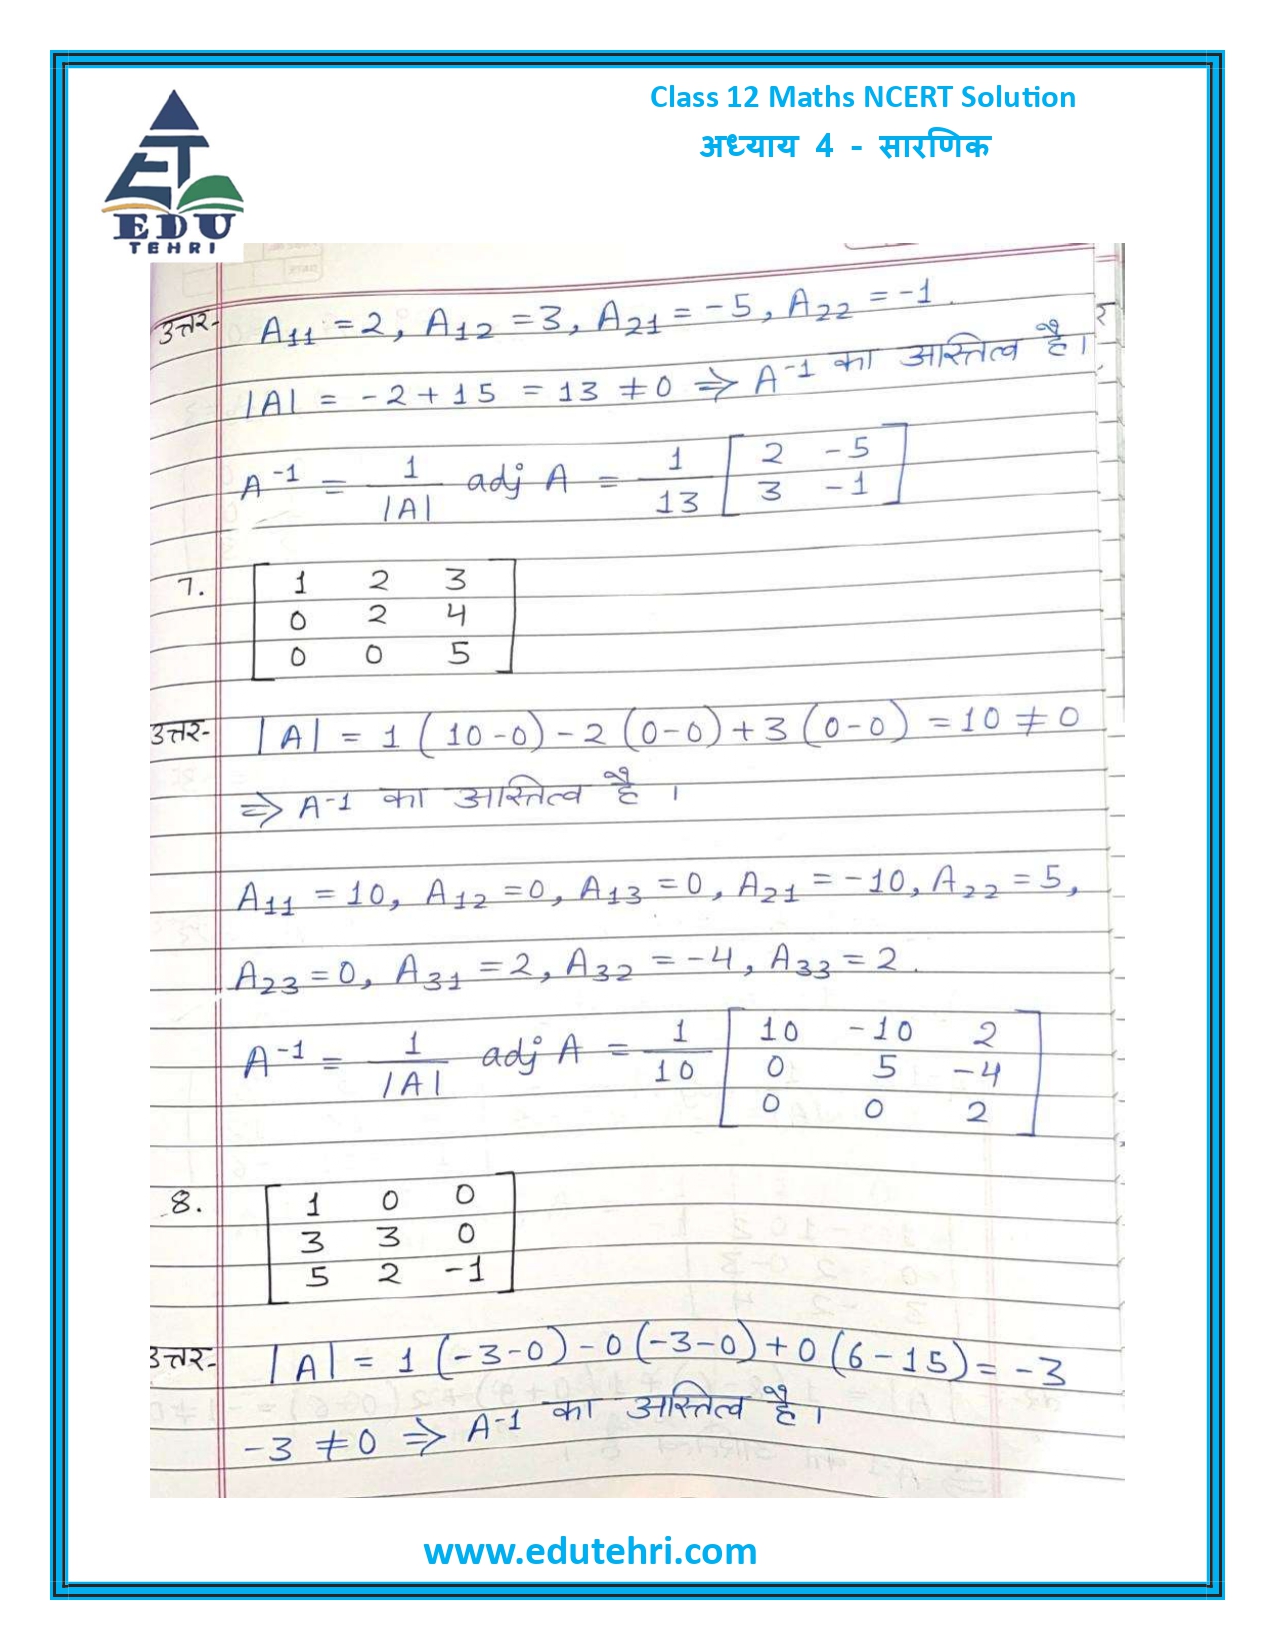 Class 12 Maths NCERT Solution
अध्याय 4 - सारणिक
EDU
TEHRI
उत्तर- A₁₁ = 2, A₁₂ = 3, A₂₁ = -5, A₂₂ = -1.
|A| = -2 + 15 = 13 ≠ 0 ⇒ A⁻¹ का अस्तित्व है।
A⁻¹ = 1/|A| adj A = 1/13 [2 -5
3 -1]
7. [1 2 3
0 2 4
0 0 5]
उत्तर- |A| = 1 (10-0) - 2 (0-0) + 3 (0-0) = 10 ≠ 0
⇒ A⁻¹ का अस्तित्व है।
A₁₁ = 10, A₁₂ = 0, A₁₃ = 0, A₂₁ = -10, A₂₂ = 5,
A₂₃ = 0, A₃₁ = 2, A₃₂ = -4, A₃₃ = 2.
A⁻¹ = 1/|A| adj A = 1/10 [10 -10 2
0 5 -4
0 0 2]
8. [1 0 0
3 3 0
5 2 -1]
उत्तर- |A| = 1 (-3-0) - 0 (-3-0) + 0 (6-15) = -3
-3 ≠ 0 ⇒ A⁻¹ का अस्तित्व है।
www.edutehri.com